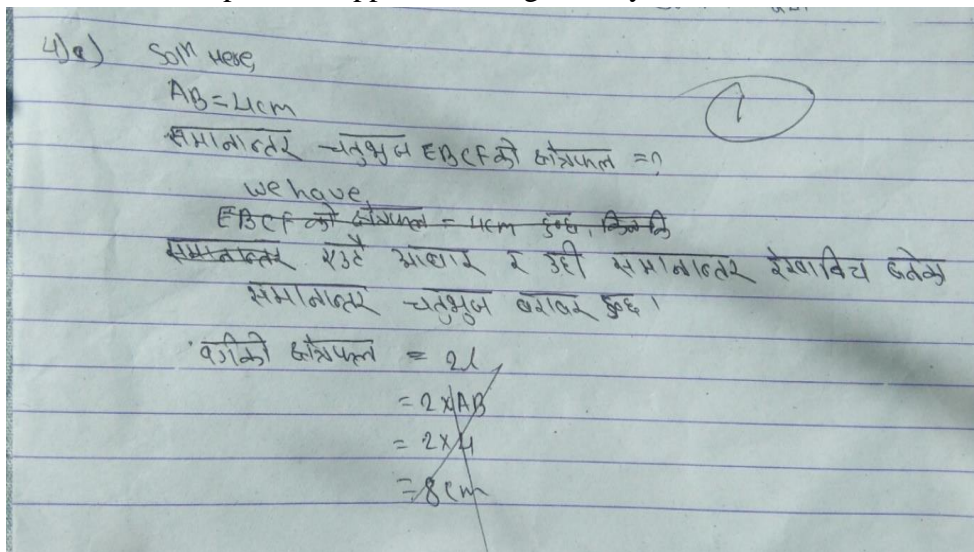 4)a) Solⁿ Here,
AB = 4cm
1
समानान्तर चतुर्भुज EBCF को क्षेत्रफल = ?
we have,
EBCF को क्षेत्रफल = 4cm हुन्छ, किनकि
समानान्तर एउटै आधार र उही समानान्तर रेखाबिच बनेका
समानान्तर चतुर्भुज बराबर हुन्छ ।
वर्गको क्षेत्रफल = 2l
= 2 × AB
= 2 × 4
= 8 cm